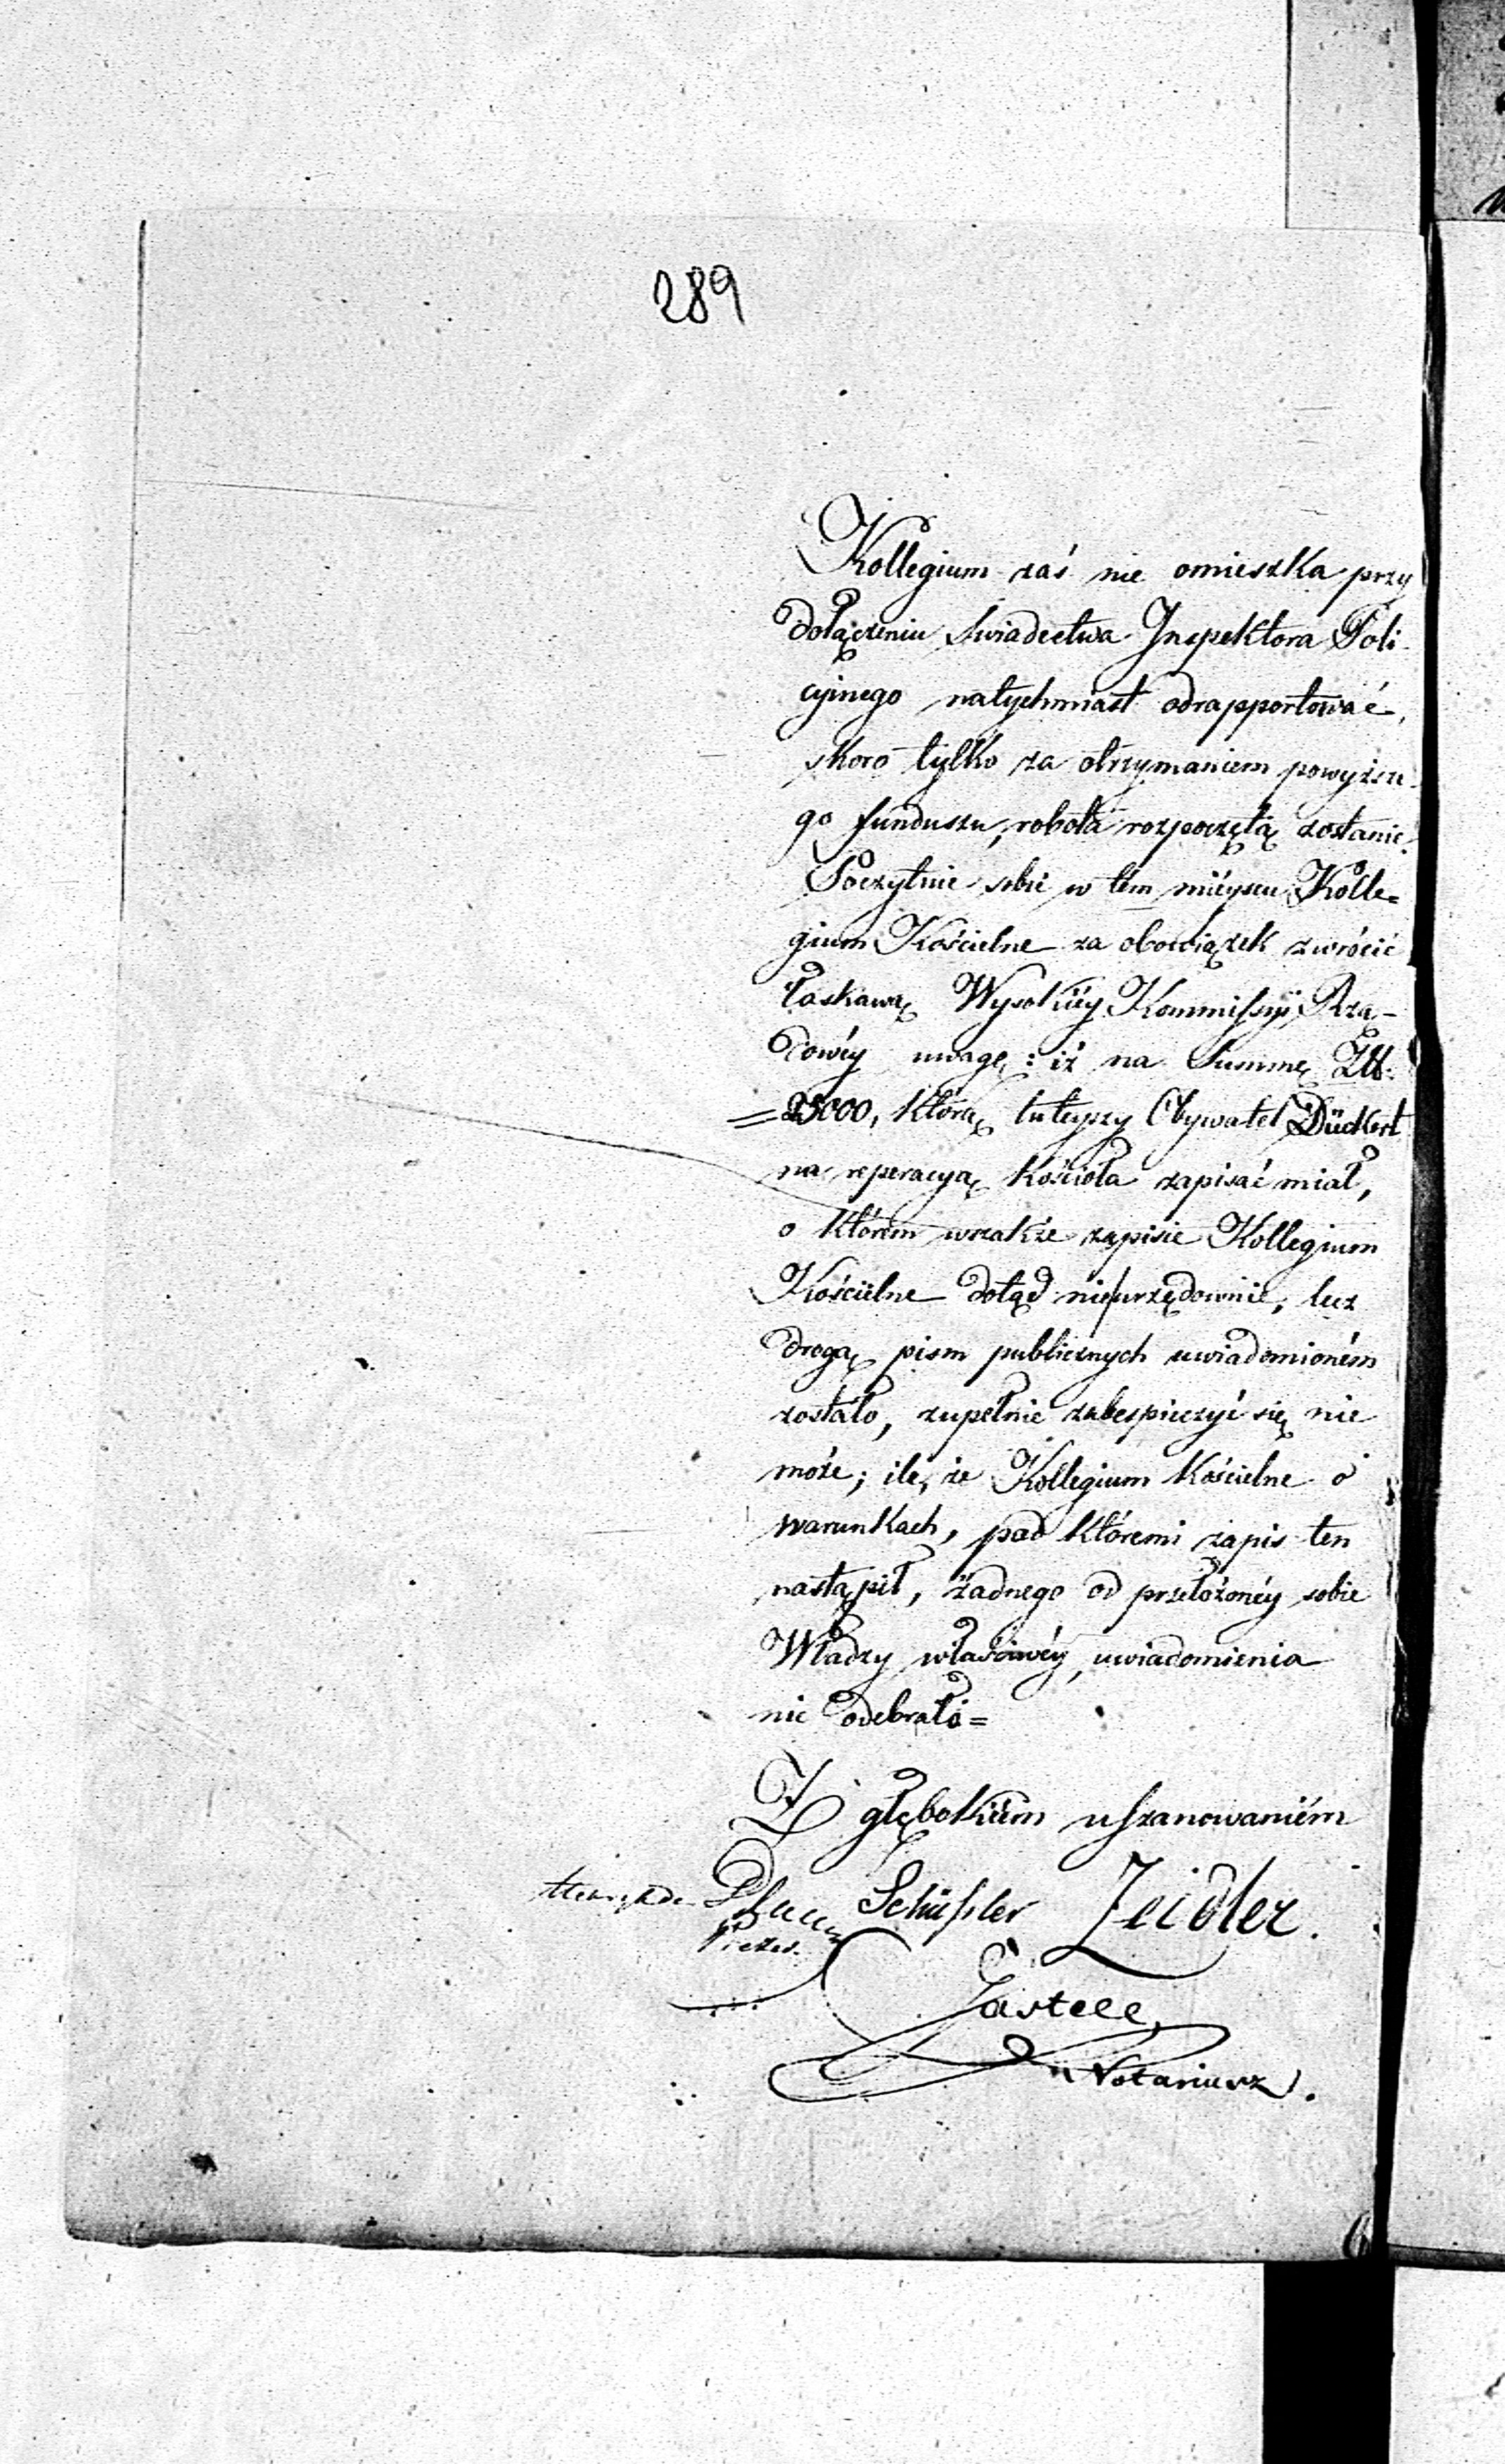 289
Kollegium zaś nie omieszka przy
dołączeniu świadectwa Inspektora Poli-
cyinego natychmiast odrapportować,
skoro tylko za otrzymaniem powyższe-
go funduszu, robota rozpoczętą zostanie.
Poczytuie sobie w tém mieyscu Kolle=
gium Kościelne za obowiązek zwrócić
łaskawą Wysokiéy Kommissyi Rzą-
dowéy uwagę: iż na Summę Zł.
=25000, którą tuteyszy Obywatel Dückert
na reperacyą kościoła zapisać miał,
o którem wszakże zapisie Kollegium
Kościelne dotąd nieurzędownie, lecz
drogą pism publicznych uwiadomioném
zostało, zupełnie zabespieczyć się nie
może; ile, że Kollegium Kościelne o
warunkach, pod któremi zapis ten
nastąpił, żadnego od przełożonéy sobie
Władzy właściwéy, uwiadomienia
nie odebrało=
Z głębokiém uszanowaniém
Schüssler Zeidler.
Prezes.
Notariusz.